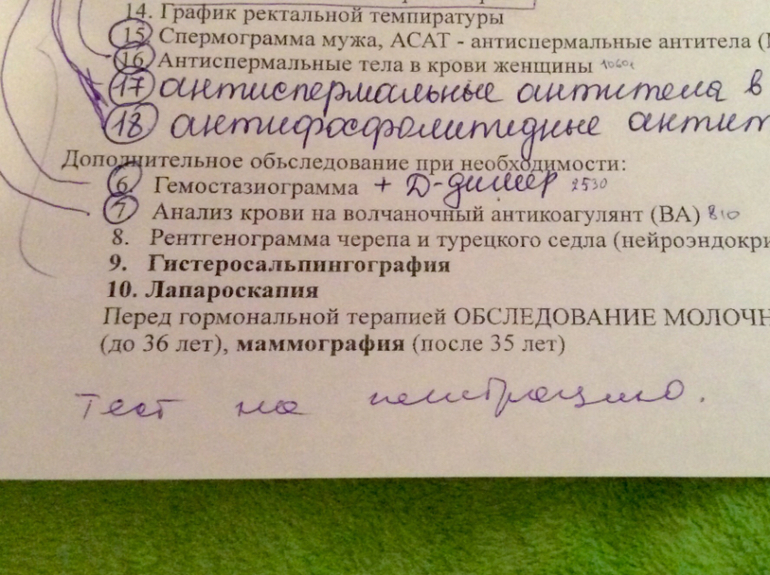 14. График ректальной темпиратуры
15. Спермограмма мужа, АСАТ - антиспермальные антитела (
16. Антиспермальные тела в крови женщины
17 антиспермальные антитела в
18. антифосфолитидные антит
Дополнительное обьследование при необходимости:
6. Гемостазиограмма + Д-димер 2530
7. Анализ крови на волчаночный антикоагулянт (ВА) 810
8. Рентгенограмма черепа и турецкого седла (нейроэндокри
9. Гистеросальпингография
10. Лапароскапия
Перед гормональной терапией ОБСЛЕДОВАНИЕ МОЛОЧН
(до 36 лет), маммография (после 35 лет)
Тест на пенитрацию.